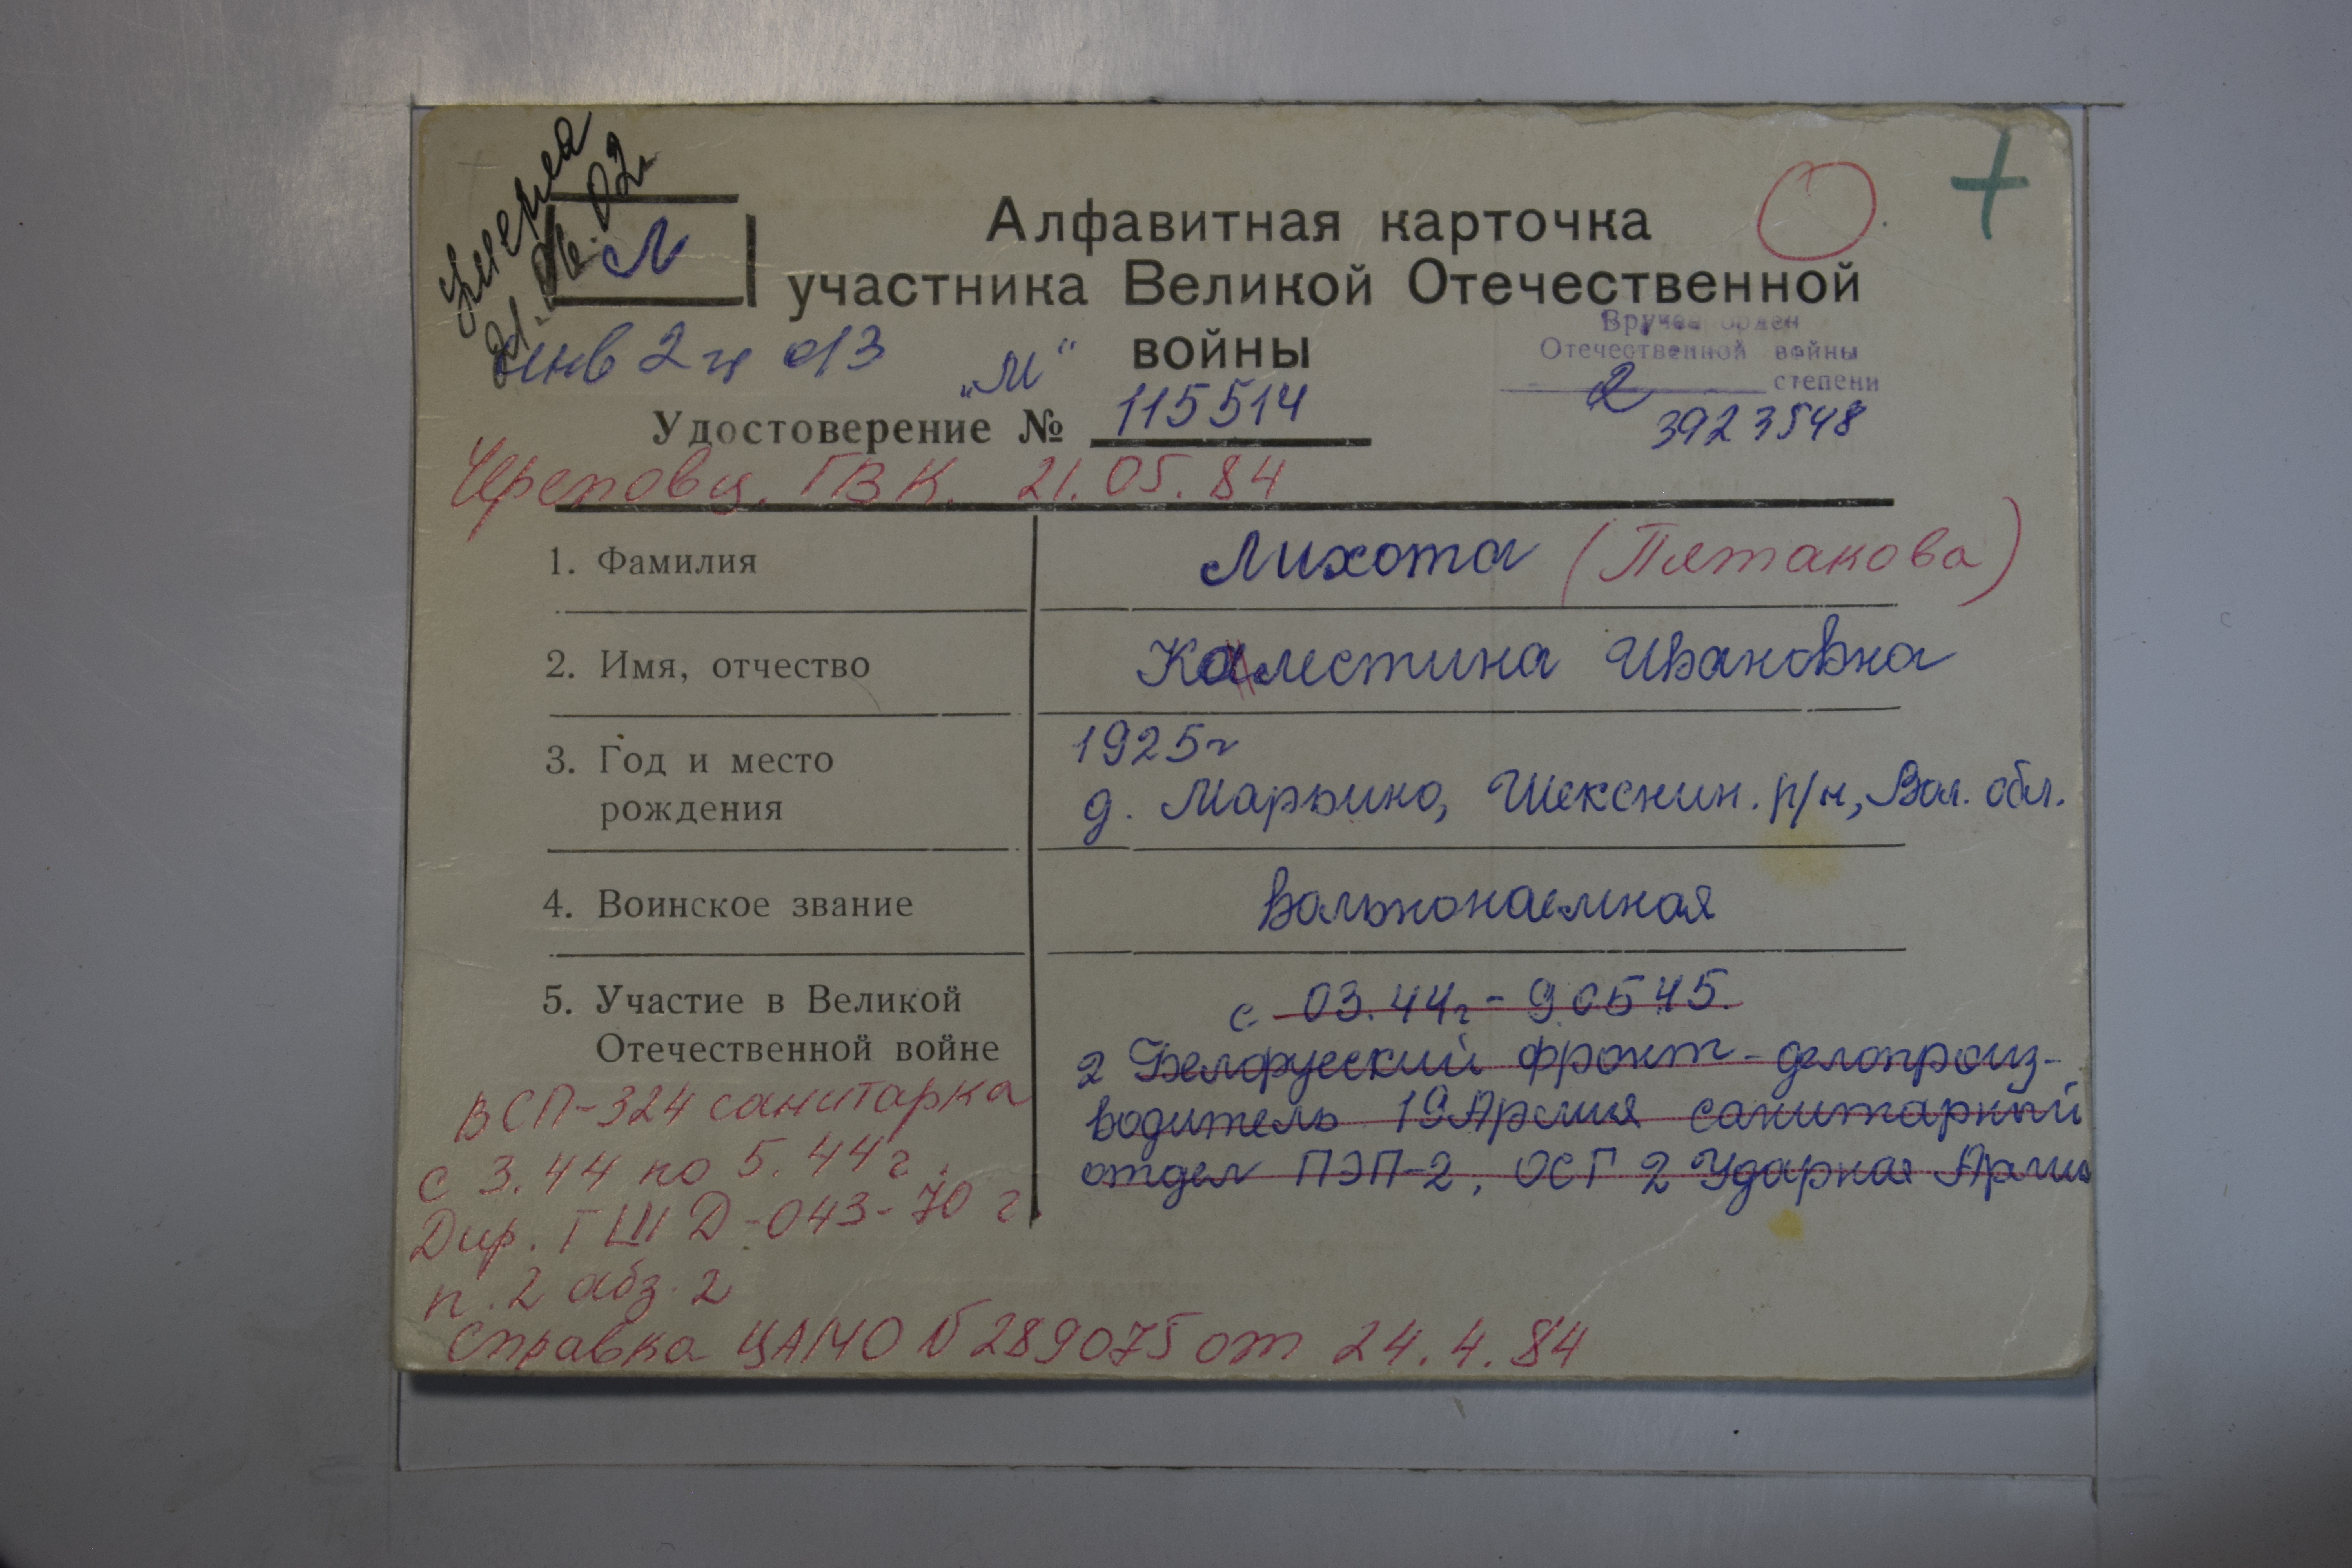 Умерла
Л
Алфавитная карточка
участника Великой Отечественной
войны
Вручен орден
Отечественной войны
2 степени
3923548
инв 2 гр
"М"
Удостоверение № 115514
Череповц. ГВК. 21.05.84
1. Фамилия
Лихота (Пятакова)
2. Имя, отчество
Калестина Ивановна
3. Год и место
рождения
1925г
д. Марьино, Шекснин. р/н, Вол. обл.
4. Воинское звание
Вольнонаемная
5. Участие в Великой
Отечественной войне
с 03.44г - 9 05 45.
2 Белоруский фронт - делопроиз-
водитель 19 Армия санитарный
отдел ПЭП-2, ОСГ 2 Ударная Армия
ВСП-324 санитарка
с 3.44 по 5.44 г.
Дир. ГШ Д-043-70 г
п. 2 абз. 2
Справка ЦАМО № 289075 от 24.4.84